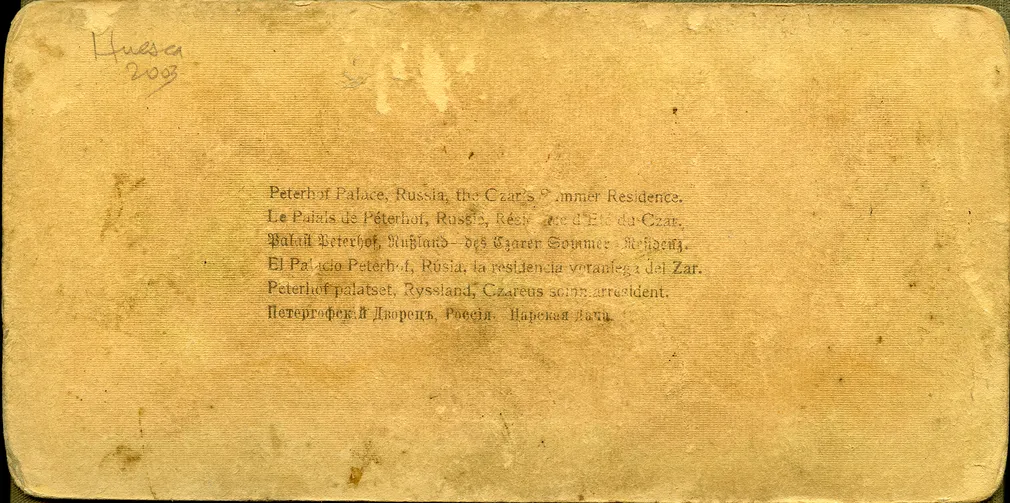 Huesca
2003
Peterhof Palace, Russia, the Czar's Summer Residence.
Le Palais de Péterhof, Russie, Résidence d'Eté du Czar.
Palast Peterhof, Rußland—des Czaren Sommer-Residenz.
El Palacio Peterhof, Rusia, la residencia veraniega del Zar.
Peterhof palatset, Ryssland, Czareus sommarresident.
Петергофскій Дворецъ, Россія. Царская Дача.